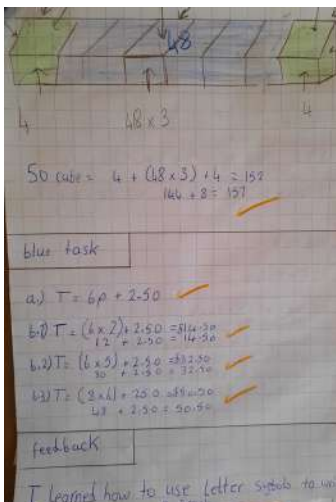 48
4
48 x 3
4
50 cube = 4 + (48 x 3) + 4 = 152
144 + 8 = 152
blue task
a.) T = 6p + 2.50
b.1) T = (6 x 2) + 2.50 = $14.50
12 + 2.50 = 14.50
b.2) T = (6 x 5) + 2.50 = $32.50
30 + 2.50 = 32.50
b.3) T = (8 x 6) + 2.50 = $50.50
48 + 2.50 = 50.50
feedback
I learned how to use letter symbols to